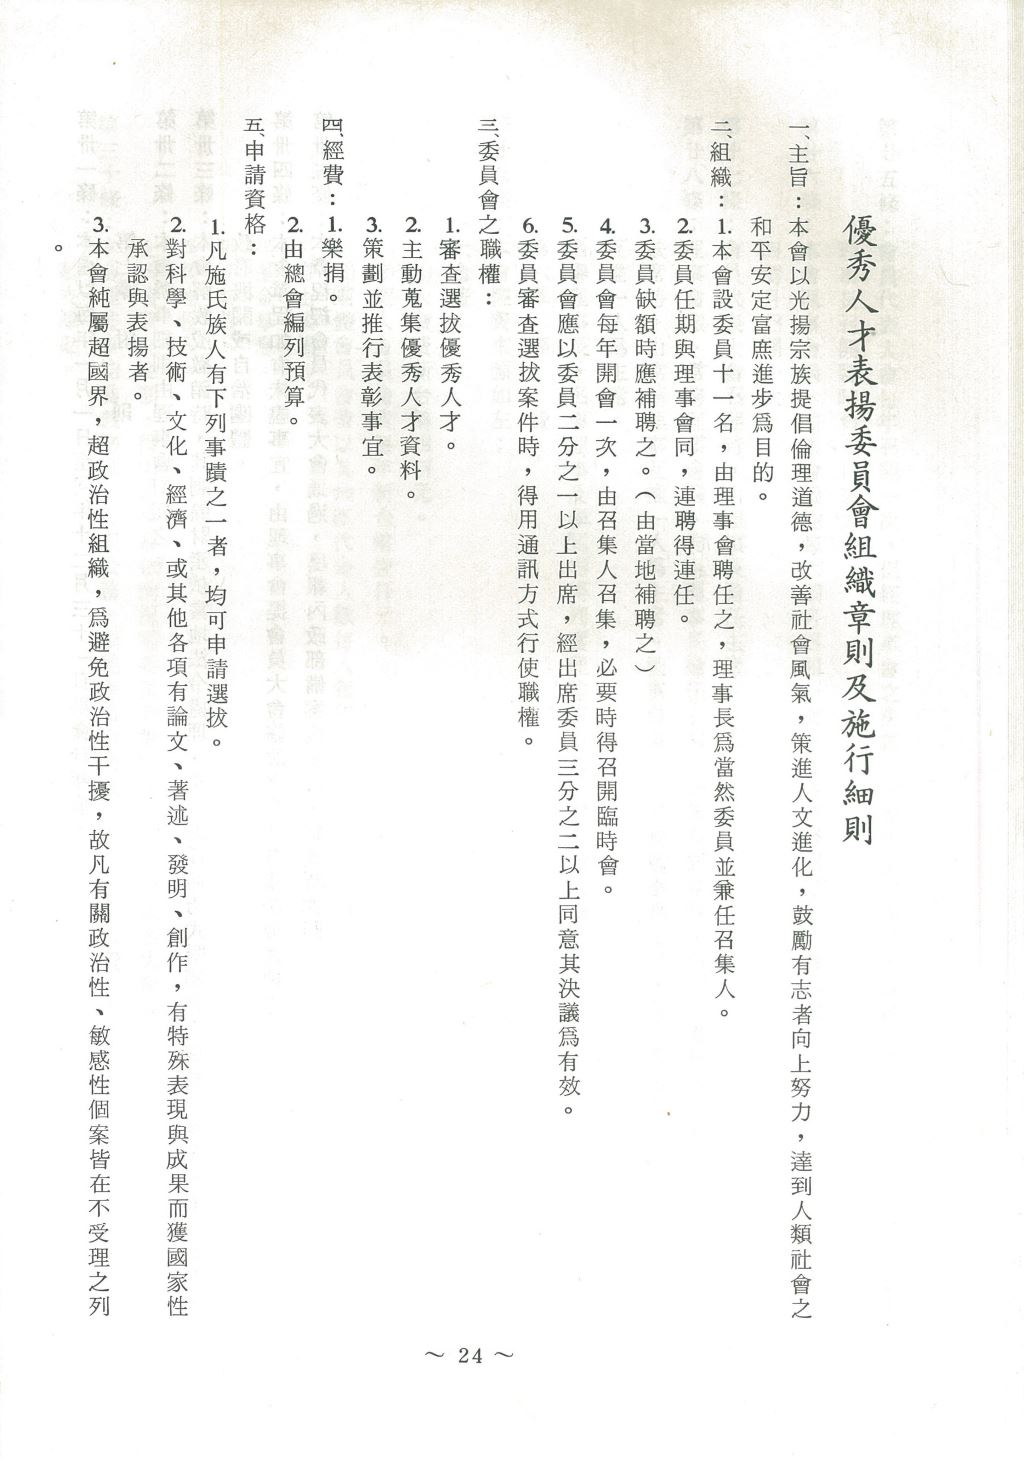 優秀人才表揚委員會組織章則及施行細則
一、主旨：本會以光揚宗族提倡倫理道德，改善社會風氣，策進人文進化，鼓勵有志者向上努力，達到人類社會之
和平安定富庶進步爲目的。
二、組織：1.本會設委員十一名，由理事會聘任之，理事長爲當然委員並兼任召集人。
2.委員任期與理事會同，連聘得連任。
3.委員缺額時應補聘之。（由當地補聘之）
4.委員會每年開會一次，由召集人召集，必要時得召開臨時會。
5.委員會應以委員二分之一以上出席，經出席委員三分之二以上同意其決議爲有效。
6.委員審查選拔案件時，得用通訊方式行使職權。
三、委員會之職權：
1.審查選拔優秀人才。
2.主動蒐集優秀人才資料。
3.策劃並推行表彰事宜。
四、經費：1.樂捐。
2.由總會編列預算。
五、申請資格：
1.凡施氏族人有下列事蹟之一者，均可申請選拔。
2.對科學、技術、文化、經濟、或其他各項有論文、著述、發明、創作，有特殊表現與成果而獲國家性
承認與表揚者。
3.本會純屬超國界，超政治性組織，爲避免政治性干擾，故凡有關政治性、敏感性個案皆在不受理之列
。
～ 24 ～